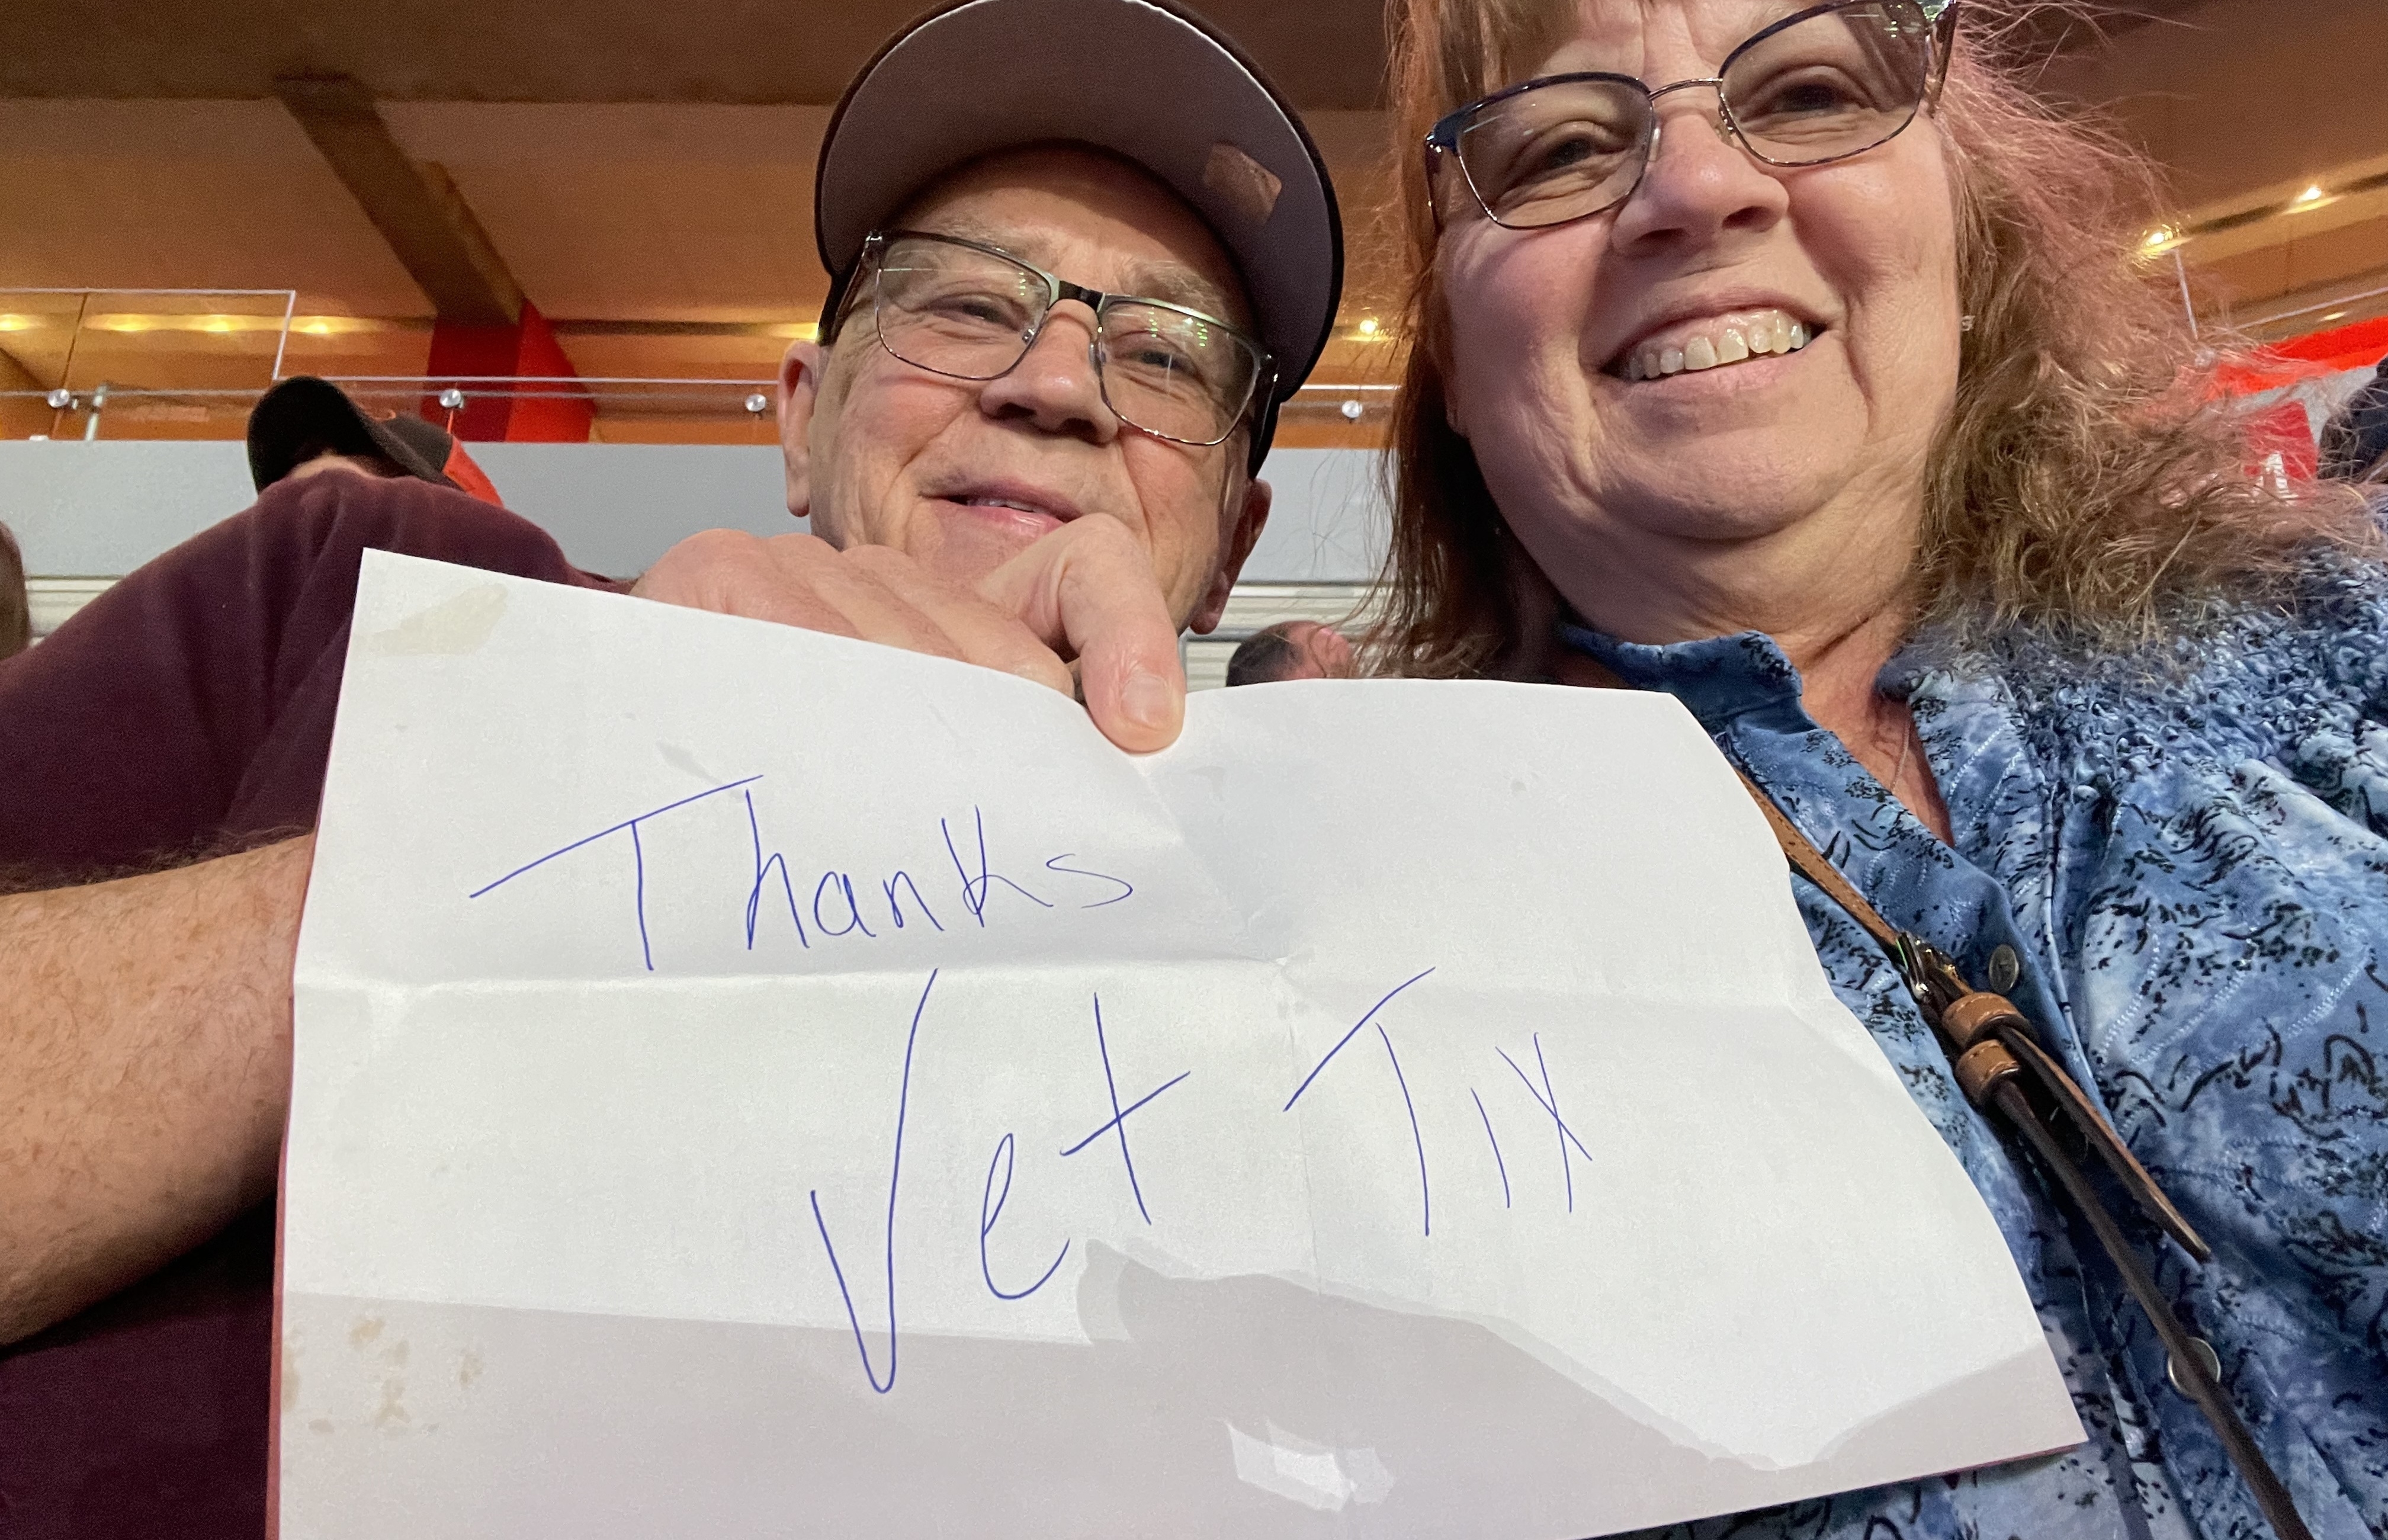 Thanks
Vet Tix